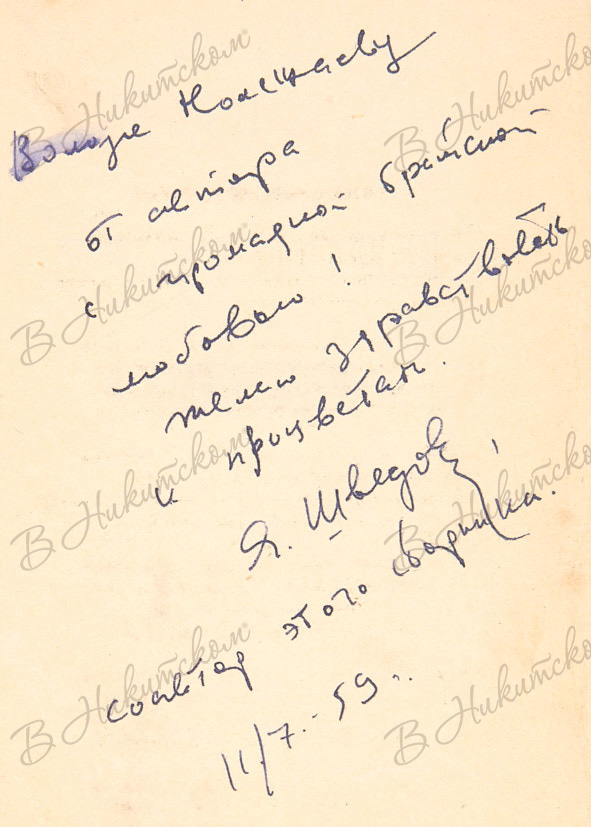 Володе
от автора
с громадной братской
любовью!
желаю здравствовать
и процветать.
Я. Шведов!
соавтор этого сборника.
11/7.-59.
В Никитском
В Никитском
В Никитском
В Никитском
В Никитском
В Никитском
В Никитском
В Никитском